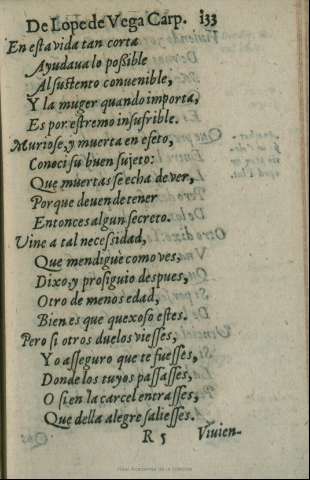 De Lope de Vega Carp. 133
En esta vida tan corta
Ayudaua lo poßible
Al sustento conuenible,
Y la muger quando importa,
Es por estremo insufrible.
Muriose, y muerta en efeto,
Conoci su buen sujeto:
Que muertas se echa de ver,
Porque deuen de tener
Entonces algun secreto.
Vine a tal necessidad,
Que mendiguè como ves,
Dixo, y prosiguio despues,
Otro de menos edad,
Bien es que quexoso estes.
Pero si otros duelos viesses,
Yo asseguro que te fuesses,
Donde los tuyos passasses,
O si en la carcel entrasses,
Que della alegre saliesses.
R 5 Viuien-